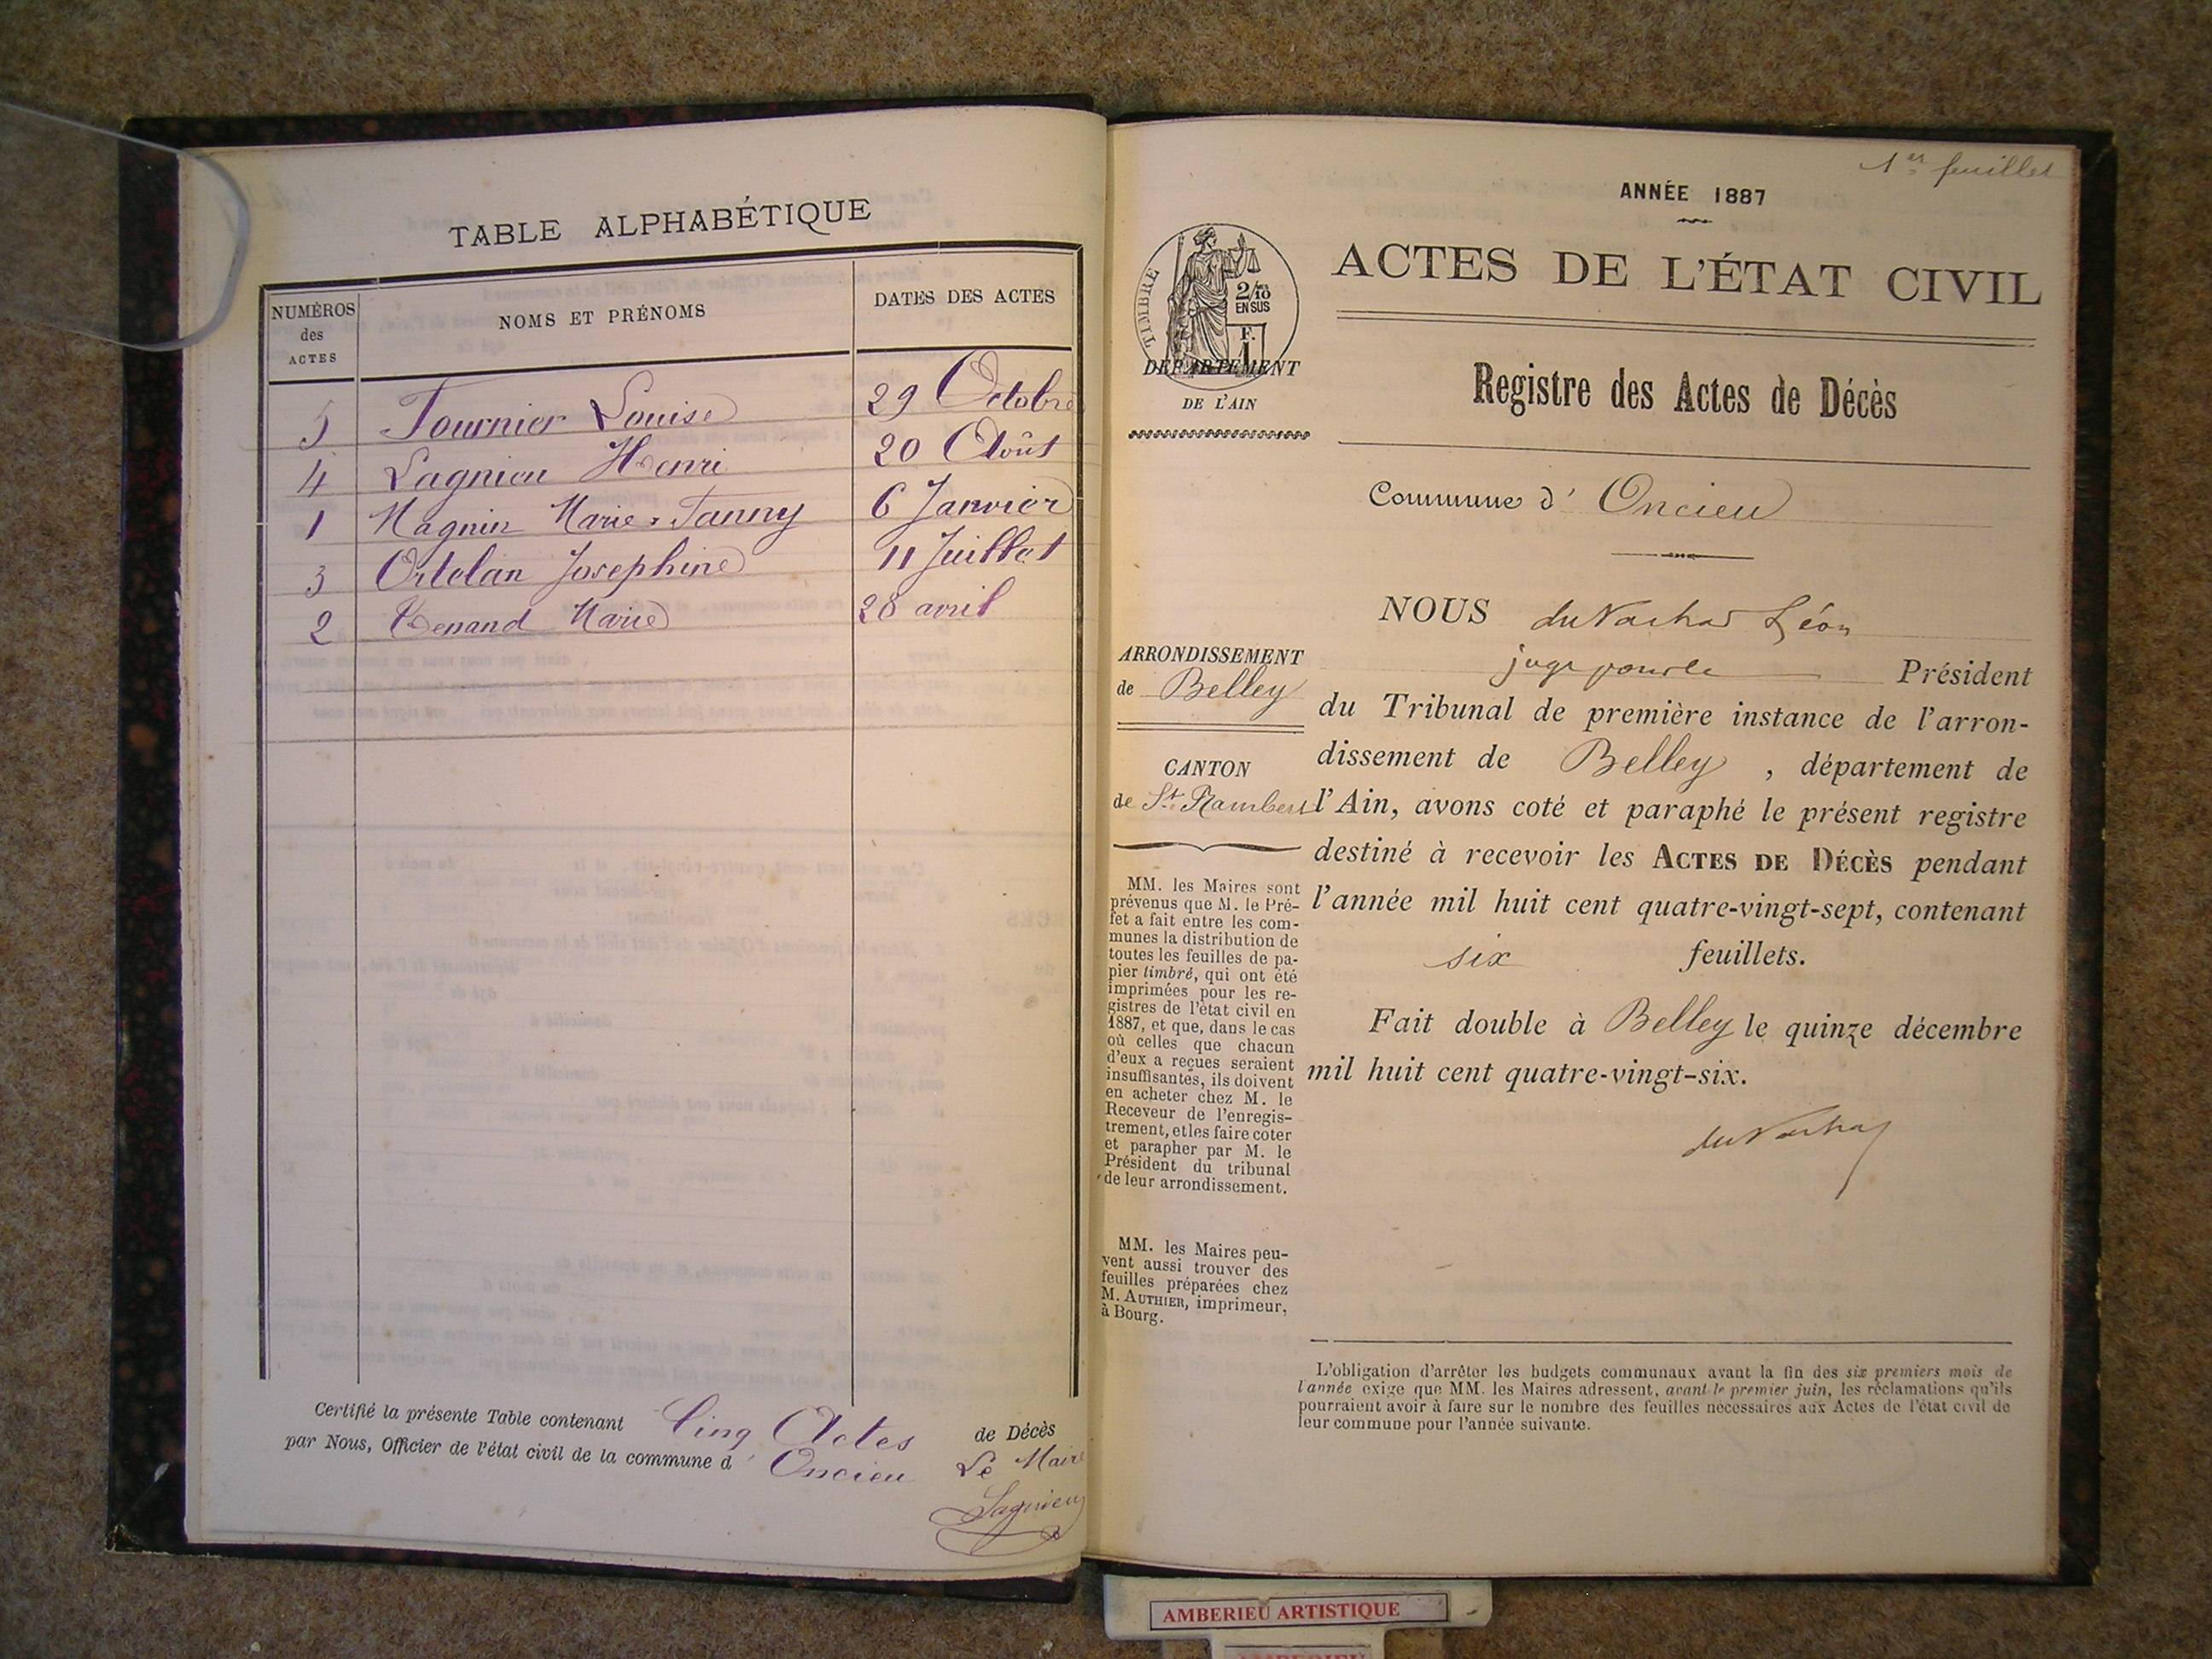 TABLE ALPHABÉTIQUE
NUMÉROS des ACTES
NOMS ET PRÉNOMS
DATES DES ACTES
5 Fournier Louise 29 Octobre
4 Lagnieu Henri 20 Août
1 Magnin Marie-Fanny 6 Janvier
3 Ortolan Josephine 11 Juillet
2 Marie 28 avril
Certifié la présente Table contenant Cinq Actes de Décès
par Nous, Officier de l'état civil de la commune d' Oncieu Le Maire
Lagnieu
1er feuillet
ANNÉE 1887
ACTES DE L'ÉTAT CIVIL
TIMBRE
2/10 EN SUS
F.
1
DEPARTEMENT
DE L'AIN
Registre des Actes de Décès
Commune d' Oncieu
ARRONDISSEMENT
de Belley
CANTON
de St. Rambert
MM. les Maires sont
prévenus que M. le Pré-
fet a fait entre les com-
munes la distribution de
toutes les feuilles de pa-
pier timbré, qui ont été
imprimées pour les re-
gistres de l'état civil en
1887, et que, dans le cas
où celles que chacun
d'eux a reçues seraient
insuffisantes, ils doivent
en acheter chez M. le
Receveur de l'enregis-
trement, et les faire coter
et parapher par M. le
Président du tribunal
de leur arrondissement.
MM. les Maires peu-
vent aussi trouver des
feuilles préparées chez
M. AUTHIER, imprimeur,
à Bourg.
NOUS Léon
juge pour le Président
du Tribunal de première instance de l'arron-
dissement de Belley, département de
l'Ain, avons coté et paraphé le présent registre
destiné à recevoir les ACTES DE DÉCÈS pendant
l'année mil huit cent quatre-vingt-sept, contenant
six feuillets.
Fait double à Belley le quinze décembre
mil huit cent quatre-vingt-six.
L'obligation d'arrêter les budgets communaux avant la fin des six premiers mois de
l'année exige que MM. les Maires adressent, avant le premier juin, les réclamations qu'ils
pourraient avoir à faire sur le nombre des feuilles nécessaires aux Actes de l'état civil de
leur commune pour l'année suivante.
AMBERIEU ARTISTIQUE
AMBERIEU